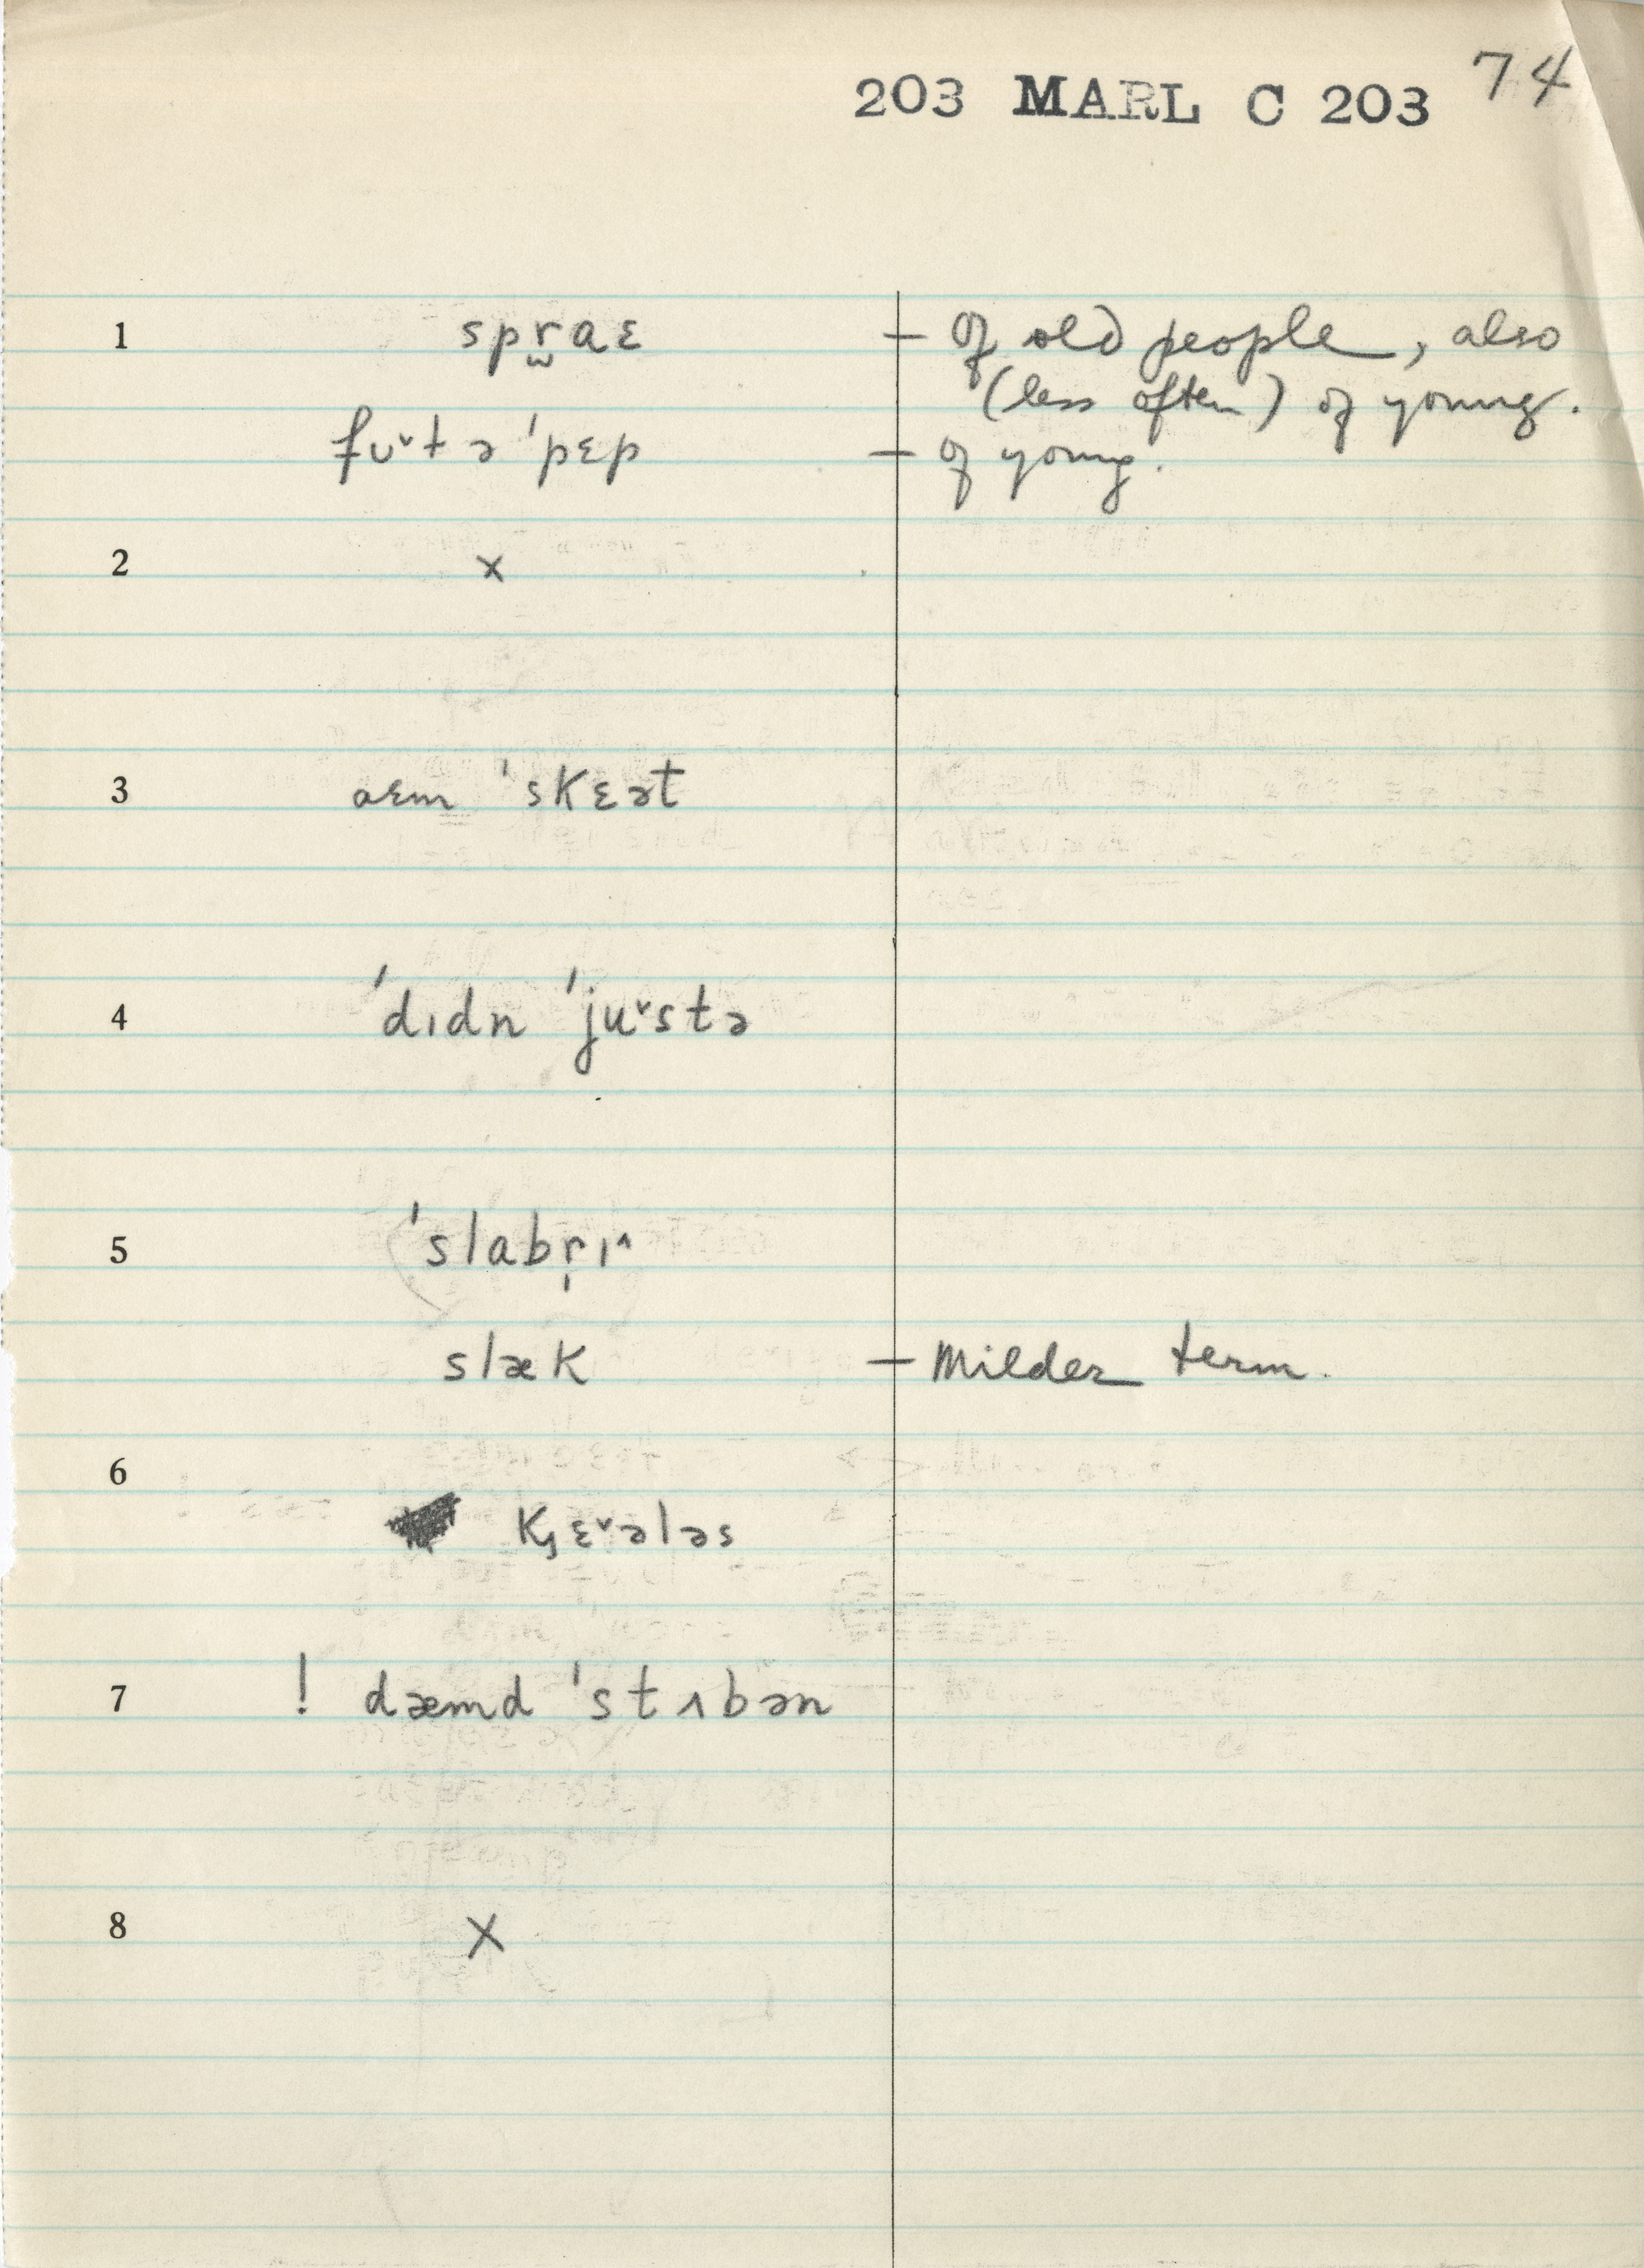 203 MARL C 203 74
1 spr̫aɛ — of old people, also
(less often) of young.
fʊˇt ə ˈpɛp — of young.
2 x
3 aɛm ˈskɛət
4 ˈdɪdn ˈjuˇstə
5 ˈslabr̩ɪ^
slæk — Milder term.
6
k̡ɛˇələs
7 ! dæmd ˈstʌbən
8 X